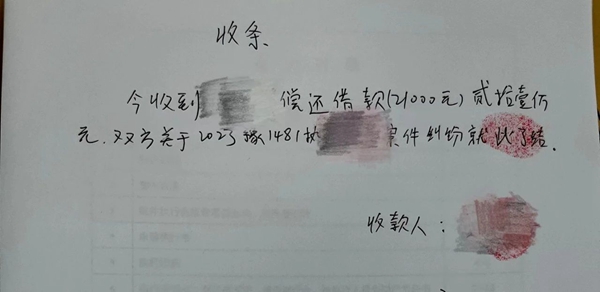 收条
今收到 偿还借款(21000元)贰拾壹仟
元.双方关于2023豫1481执 案件纠纷就此了结.
收款人: